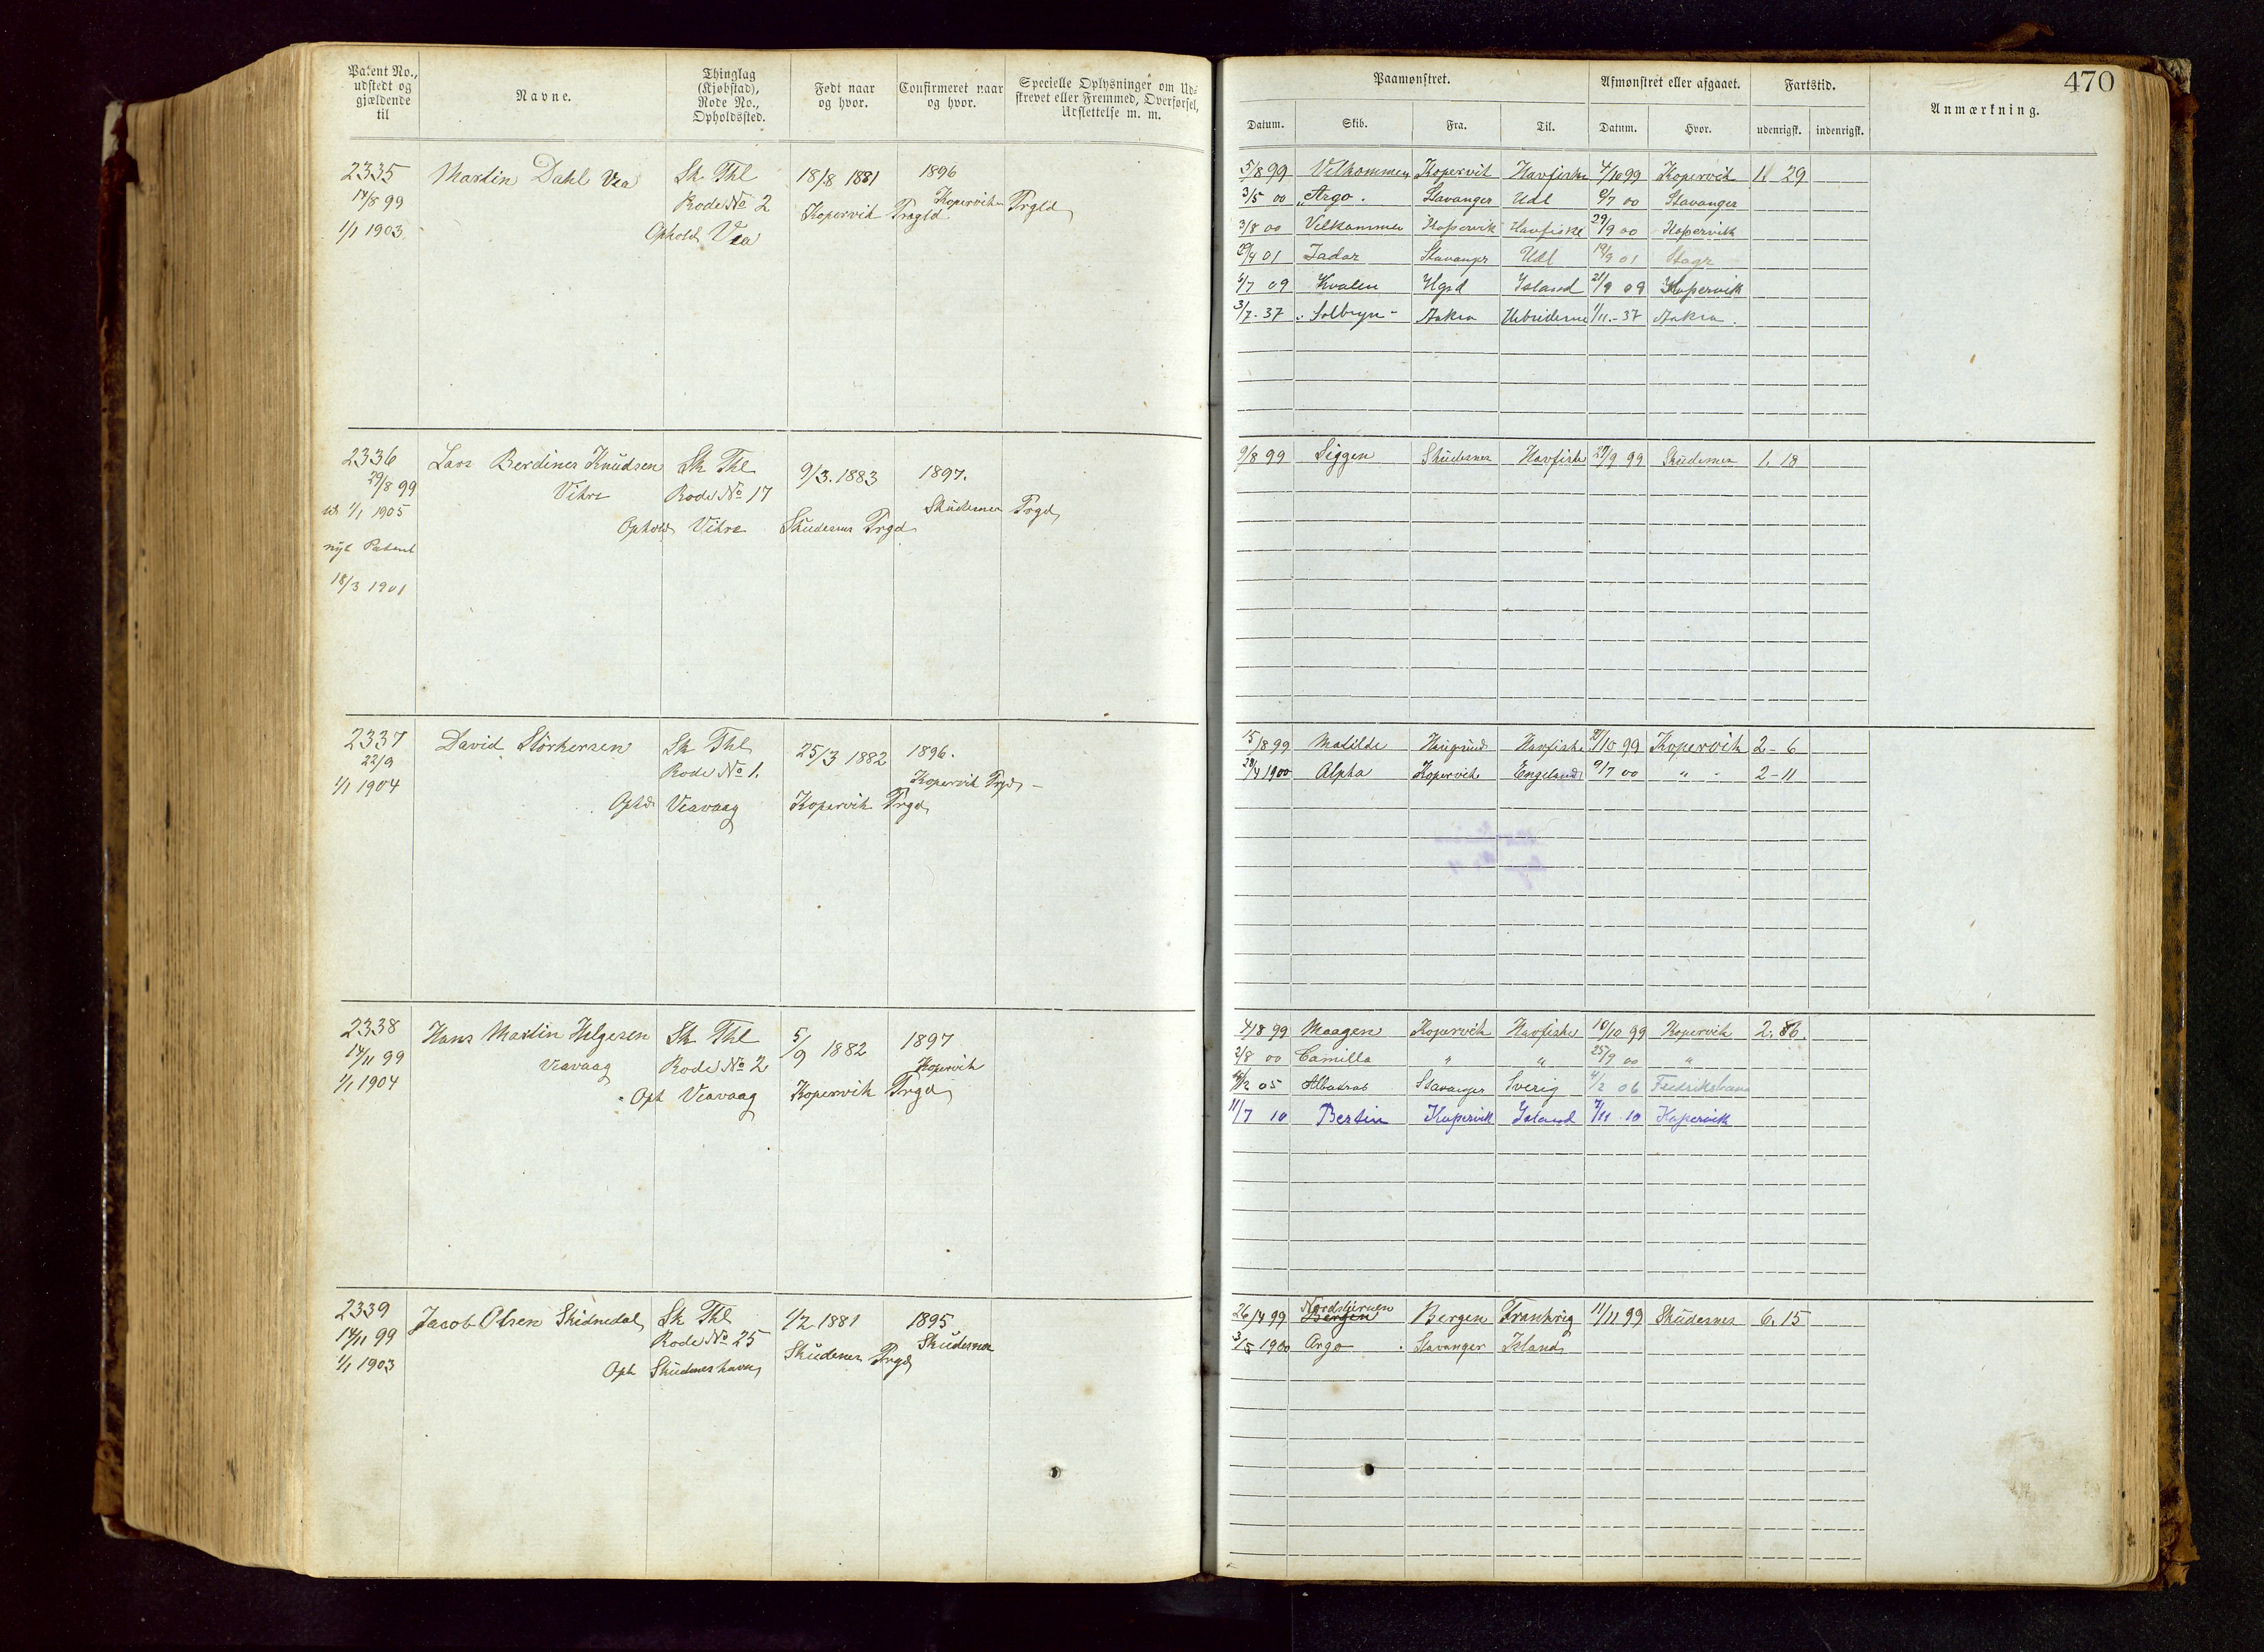 Patent No.,
udstedt og
gjældende
til
Navne.
Thinglag
(Kjøbstad),
Rode No.,
Opholdssted.
Født naar
og hvor.
Confirmeret naar
og hvor.
Specielle Oplysninger om Ud-
skrevet eller Fremmed, Overførsel,
Udslettelse m. m.
2335
14/8 99
1/1 1903
Martin Dahl Vea
Sk. Thl
Rode No 2
Ophold Vea
18/8 1881
Kopervik Prgld
1896
Kopervik Prgld
2336
29/8 99
1/1 1905
nyt Patent
18/3 1901
Lars Berdines Knudsen
Vihre
Sk Thl
Rode No 17
Ophold Vihre
9/3. 1883
Skudesnes Prgd
1897.
Skudesnes Prgd
2337
22/9
1/1 1904
David Störkersen
Sk Thl
Rode No 1.
Ophd Veavaag
25/3 1882
Kopervik Prgd
1896.
Kopervik Prgd
2338
14/11 99
1/1 1904
Hans Martin Helgesen
Veavaag
Sk Thl
Rode No 2
Oph Veavaag
5/9 1882
Kopervik Prgd
1897
Kopervik
2339
14/11 99
1/1 1903
Jacob Olsen Skidnedal
Sk Thl
Rode No 25
Oph Skudeneshavn
1/2 1881
Skudenes Prgd
1895
Skudesnes
470
Paamønstret.
Afmønstret eller afgaaet.
Fartstid.
Anmærkning.
Datum. Skib. Fra. Til. Datum. Hvor. udenrigsk. indenrigsk.
5/8 99 Velkommen Kopervik Havfiske 4/10 99 Kopervik 1 29
3/5 00 "Argo. Stavanger Udl /7 00 Stavanger
3/8 00 Velkommen Kopervik Havfiske 29/9 00 Kopervik
/4 01 Jadar Stavanger Udl /9 01 Stagr
6/7 09 Kvalen Hgsd Island 21/9 09 Kopervik
3/7-37 "Solbryn" Aakra Hebriderne 1/11-37 Aakra.
9/8 99 Siggen Skudesnes Havfiske 27/9 99 Skudesnes 1. 18
15/8 99 Matilde Haugesund Havfiske /10 99 Kopervik 2-6
28/4 1900 Alpha Kopervik England 9/7 00 " - 2-11
4/8 99 Maagen Kopervik Havfiske 10/10 99 Kopervik 2. 6.
2/8 00 Camilla " " 25/9 00 "
/2 05 Albatros Stavanger Sverig 4/2 06 Fredrikshavn
11/7 10 Bertin Kopervik Island 7/11 10 Kopervik
26/4 99 Nordstjernen Bergen Bergen Frankrig 11/11 99 Skudesnes 6. 15
3/5 1900 Argo Stavanger Island